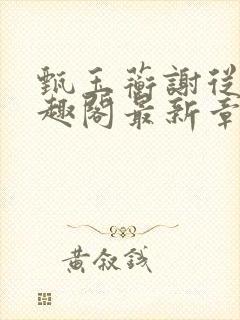 甄玉蘅謝從
趣閣最新章
黃叙錢